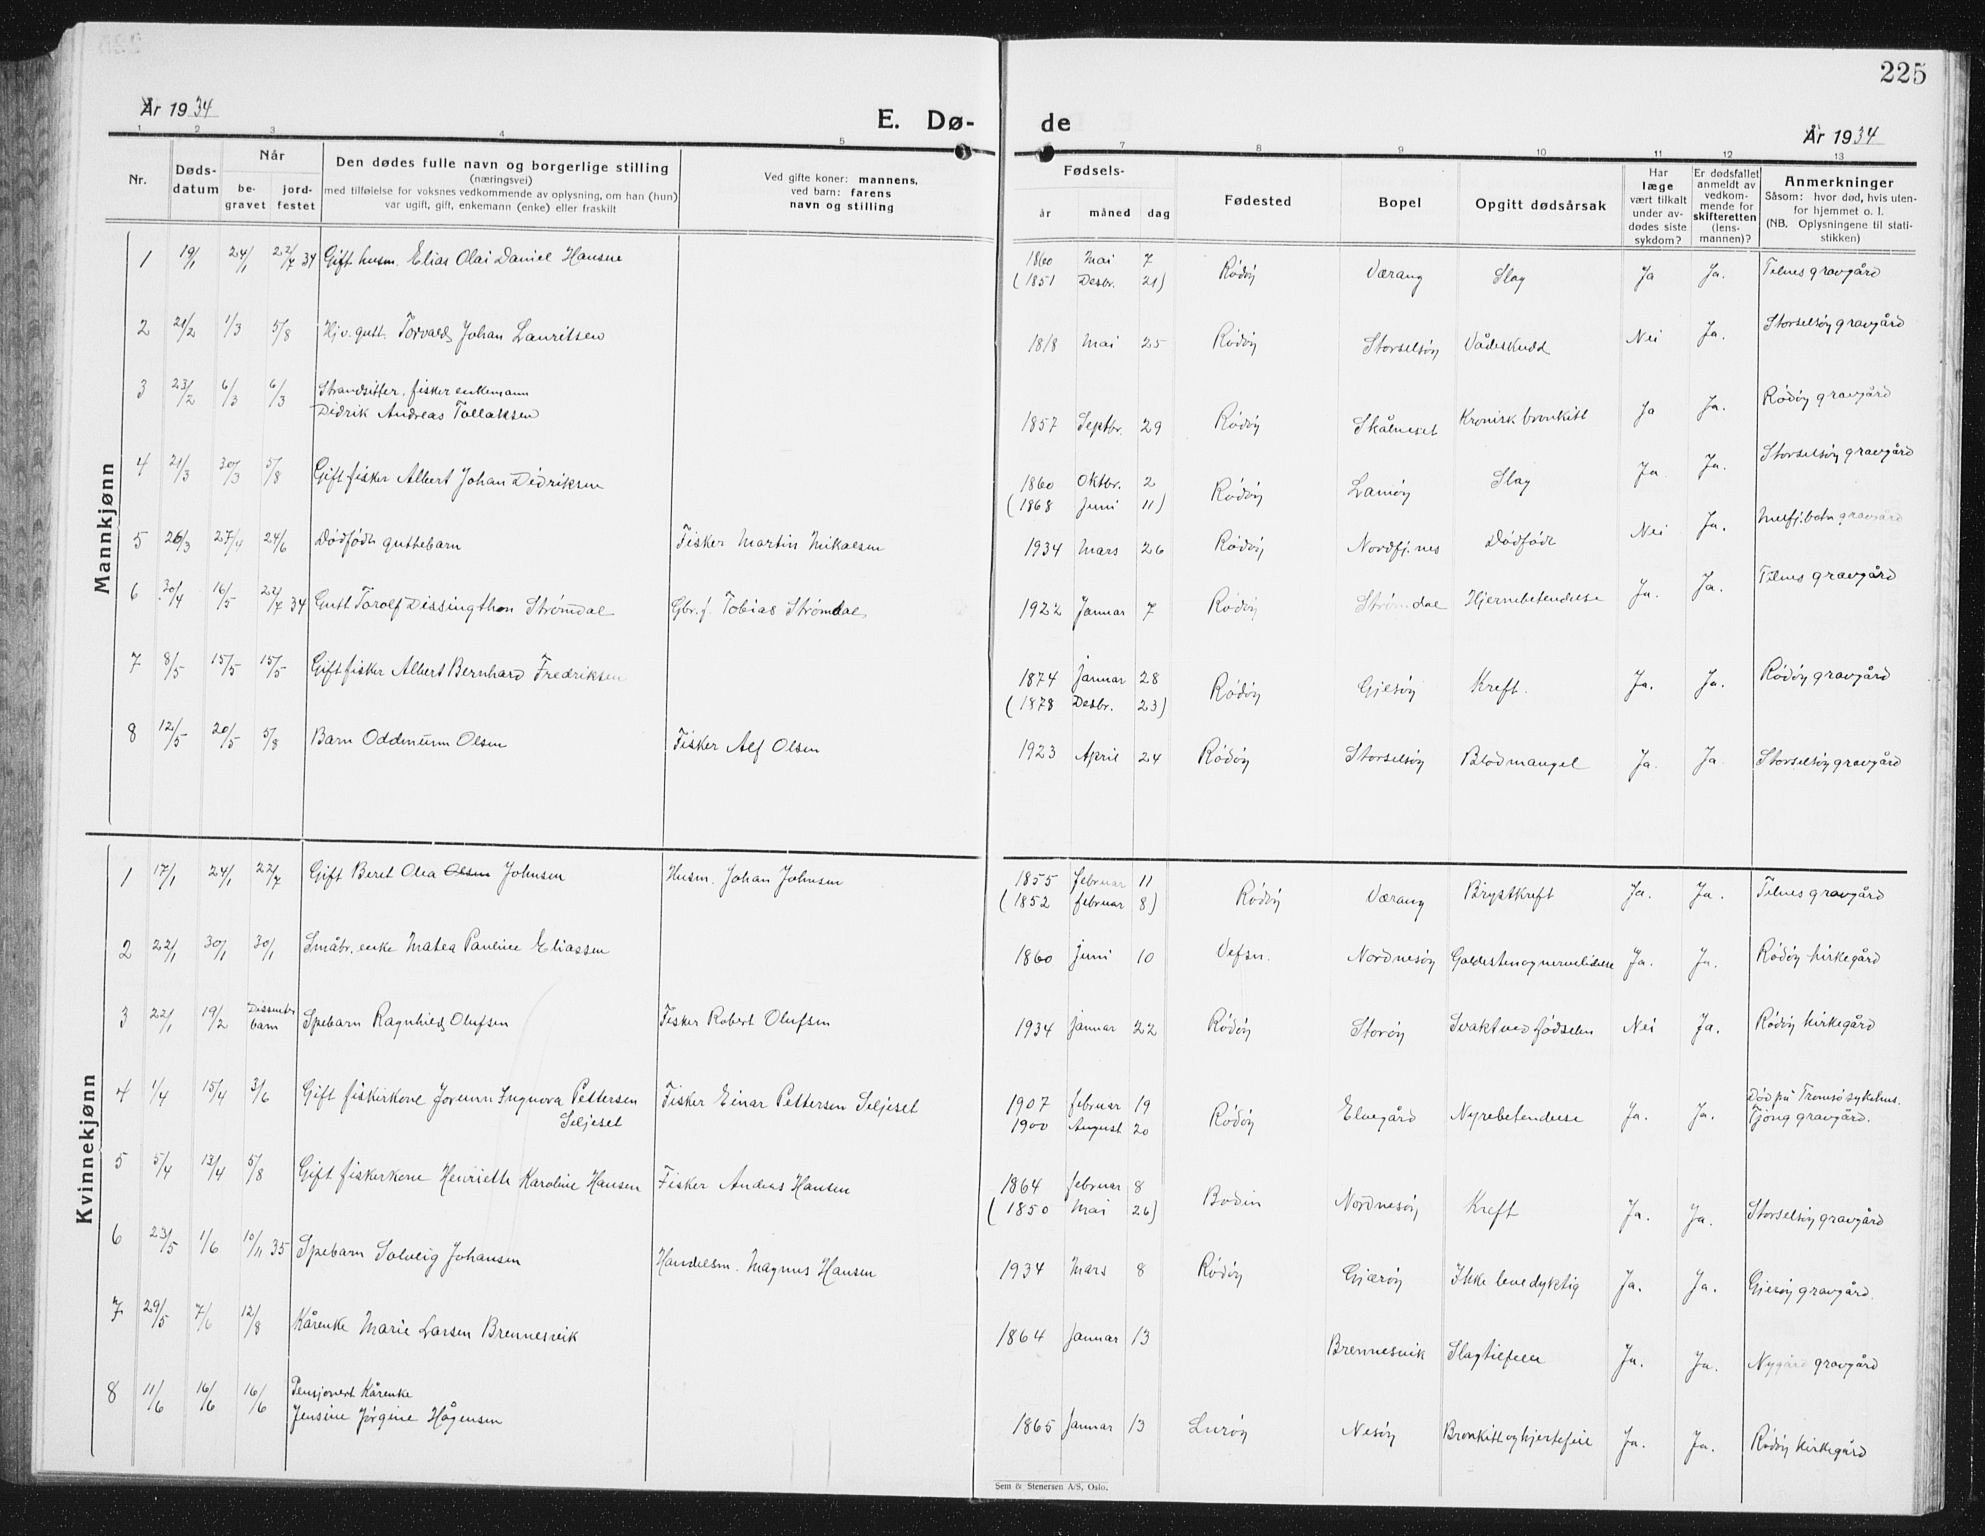 225
År 1934
E. Dø-
de
År 1934
1 2 3 4 5 7 8 9 10 11 12 13
Nr.
Døds-
datum
Når
be-
gravet
jord-
festet
Den dødes fulle navn og borgerlige stilling
(næringsvei)
med tilføielse for voksnes vedkommende av oplysning, om han (hun)
var ugift, gift, enkemann (enke) eller fraskilt
Ved gifte koner: mannens,
ved barn: farens
navn og stilling
Fødsels-
år måned dag
Fødested
Bopel
Opgitt dødsårsak
Har
læge
vært tilkalt
under av-
dødes siste
sykdom?
Er dødsfallet
anmeldt av
vedkom-
mende for
skifteretten
(lens-
mannen)?
Anmerkninger
Såsom: hvor død, hvis uten-
for hjemmet o. l.
(NB. Oplysningene til stati-
stikken)
Mannkjønn
1 19/1 24/1 22/7 34 Gift husm. Elias Olai Daniel Hansen 1860 Mai 7 Rødøy Værang Slag Ja Ja. Telnes gravgård
(1851 Desbr. 21)
2 21/2 1/3 5/8 Hjv. gutt. Torvald Johan Lauritsen 1818 Mai 25 Rødøy Storselsøy Vådeskudd Nei Ja. Storselsøy gravgård
3 23/2 6/3 6/3 Strandsitter, fisker enkemann
Didrik Andreas Tollaksen 1857 Septbr. 29 Rødøy Skålneset Kronisk bronkitt Ja Ja. Rødøy gravgård
4 21/3 30/3 5/8 Gift fisker Albert Johan Didriksen 1860 Oktbr. 2 Rødøy Lamøy Slag Ja Ja. Storselsøy gravgård
(1868 Juni 11)
5 26/3 27/4 24/6 Dødfødt guttebarn Fisker Martin Mikalsen 1934 Mars 26 Rødøy Nordfj.nes Dødfødt Nei Ja. Melfj.botn gravgård
6 30/4 16/5 22/7 34 Gutt Torolf Dissingthon Strømdal Gbr.f. Tobias Strømdal 1922 Januar 7 Rødøy Strømdal Hjernebetendelse Ja. Ja. Telnes gravgård
7 8/5 15/5 15/5 Gift fisker Albert Bernhard Fredriksen 1874 Januar 28 Rødøy Gjesøy Kreft. Ja. Ja. Rødøy gravgård
(1878 Desbr. 23)
8 12/5 20/5 5/8 Barn Oddmunn Olsen Fisker Alf Olsen 1923 April 24 Rødøy Storselsøy Blodmangel Ja. Ja Storselsøy gravgård
Kvinnekjønn
1 17/1 24/1 22/7 Gift Beret Olea Olsen Johnsen Husm. Johan Johnsen 1855 februar 11 Rødøy Værang Brystkreft Ja. Ja. Telnes gravgård
(1852 februar 8)
2 22/1 30/1 30/1 Småbr. enke Matea Pauline Eliassen 1860 juni 10 Vefsn. Nordnesøy Galdesten og nervelidelse Ja. Ja. Rødøy kirkegård
3 22/1 19/2 Dissenter
barn Spebarn Ragnhild Olufsen Fisker Robert Olufsen 1934 januar 22 Rødøy Storøy Svakt ved fødselen Nei Ja. Rødøy kirkegård
4 1/4 15/4 3/6 Gift fiskerkone Jorunn Ingnora Pettersen
Seljeset Fisker Einar Pettersen Seljeset 1907 februar 19 Rødøy Elvegård Nyrebetendelse Ja. Ja. Død på Tromsø sykehus.
1900 August 20 Tjong gravgård.
5 5/4 13/4 5/8 Gift fiskerkone Henriette Karoline Hansen Fisker Andreas Hansen 1864 februar 8 Bodin Nordnesøy Kreft Ja. Ja. Storselsøy gravgård
(1850 Mai 26)
6 23/5 1/6 10/11 35 Spebarn Solveig Johansen Handelsm. Magnus Hansen 1934 Mars 8 Rødøy Gjærøy Ikke levedyktig Ja. Ja. Gjesøy gravgård.
7 29/5 7/6 12/8 Kårenke Marie Larsen Brennesvik 1864 Januar 13 Brennesvik Slagtilfelle Ja. Ja. Nygård gravgård
8 11/6 16/6 16/6 Pensjonert Kårenke
Jensine Jørgine Hågensen 1865 Januar 13 Lurøy Nesøy Bronkitt og hjertefeil Ja. Ja. Rødøy kirkegård
Sem & Stenersen A/S, Oslo.